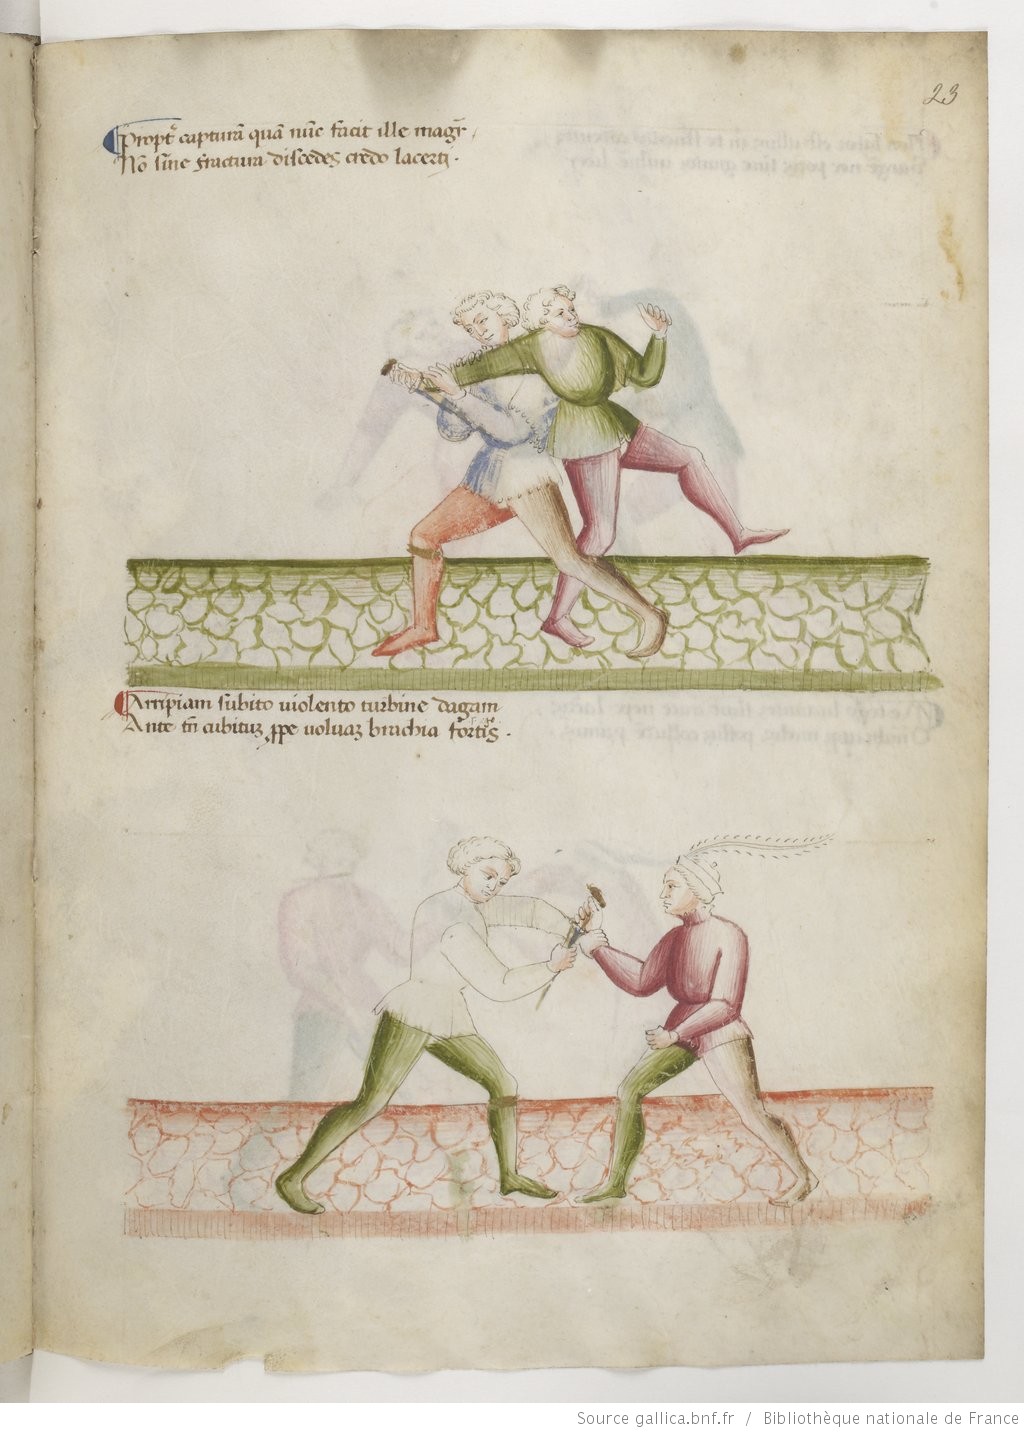 23
Propt̃ capturã quã nũc facit ille magr̃,
Nõ sine fractura discedes credo lacerti.
Arripiam subito violento turbine dagam
Ante tñ cubituꝫ ꝓpe voluaꝫ brachia fortis.
Source gallica.bnf.fr / Bibliothèque nationale de France